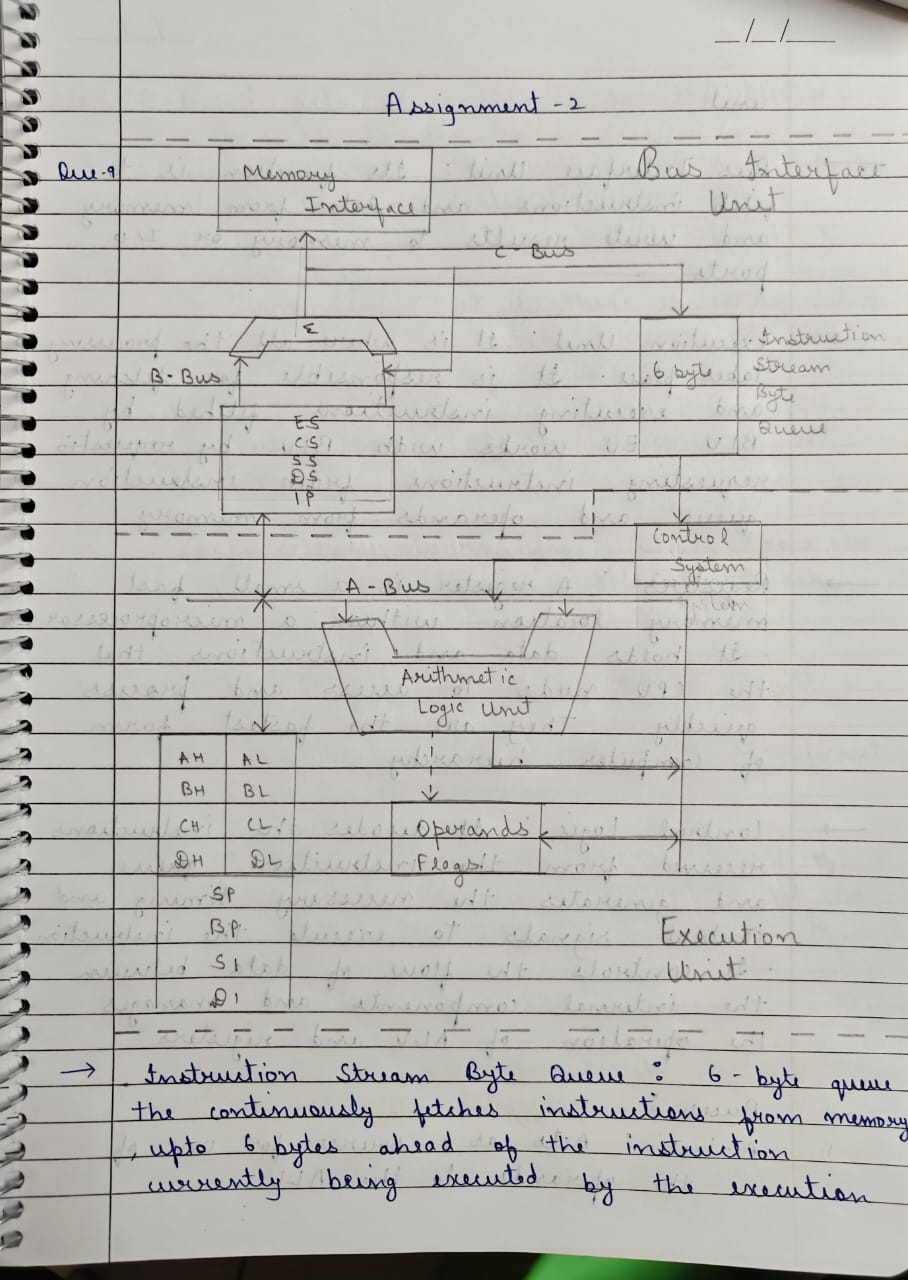 _/_/_
Assignment - 2
Que-9
Memory
Interface
Bus Interface
Unit
C - Bus
Σ
B - Bus
6 byte
Instruction
Stream
Byte
Queue
ES
CS
SS
DS
IP
Control
System
A - Bus
Arithmetic
Logic Unit
AH AL
BH BL
CH CL
DH DL
SP
BP
SI
DI
Operands
Flags
Execution
Unit
→ Instruction Stream Byte Queue : 6 - byte queue
the continuously fetches instructions from memory
, upto 6 bytes ahead of the instruction
currently being executed by the execution